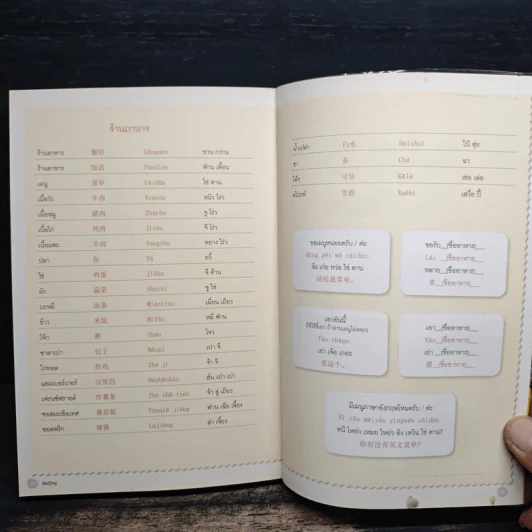 ร้านอาหาร
ร้านอาหาร 餐馆 Cānguǎn ชาน กว่าน
ร้านอาหาร 饭店 Fàndiàn ฟ่าน เตี้ยน
เมนู 菜单 Càidān ไช่ ตาน
เนื้อวัว 牛肉 Niúròu หนิว โร่ว
เนื้อหมู 猪肉 Zhūròu จู โร่ว
เนื้อไก่ 鸡肉 Jīròu จี โร่ว
เนื้อแพะ 羊肉 Yángròu หยาง โร่ว
ปลา 鱼 Yú ยวี๋
ไข่ 鸡蛋 Jīdàn จี ต้าน
ผัก 蔬菜 Shūcài ซู ไช่
บะหมี่ 面条 Miàntiáo เมี่ยน เถียว
ข้าว 米饭 Mǐfàn หมี่ ฟ่าน
โจ๊ก 粥 Zhōu โจว
ซาลาเปา 包子 Bāozi เปา จึ
ไก่ทอด 炸鸡 Zhá jī จ๋า จี
แฮมเบอร์เกอร์ 汉堡包 Hànbǎobāo ฮั่น เป่า เปา
เฟรนช์ฟรายส์ 炸薯条 Zhá shǔ tiáo จ๋า สู่ เถียว
ซอสมะเขือเทศ 番茄酱 Fānqié jiàng ฟาน เฉีย เจี้ยง
ซอสพริก 辣酱 Làjiàng ล่า เจี้ยง
Beijing
น้ำเปล่า 白水 Báishuǐ ไป๋ สุ่ย
ชา 茶 Chá ฉา
โค้ก 可乐 Kělè เข่อ เล่อ
สไปรท์ 雪碧 Xuěbì เสวี่ย ปี้
ขอเมนูหน่อยครับ / ค่ะ
Qǐng gěi wǒ càidān.
ฉิ่ง เก๋ย หว่อ ไช่ ตาน
请给我菜单。
ขอรับ__(ชื่ออาหาร)___
Lái __(ชื่ออาหาร)___
หลาย__(ชื่ออาหาร)___
来__(ชื่ออาหาร)___
เอาอันนี้
Yào zhège.
เย่า เจ้อ เกอะ
要这个。
เอา__(ชื่ออาหาร)___
Yào__(ชื่ออาหาร)___
เย่า__(ชื่ออาหาร)___
要__(ชื่ออาหาร)___
มีเมนูภาษาอังกฤษไหมครับ / ค่ะ
Nǐ yǒu méiyǒu yīngwén càidān.
หนี่ โหย่ว เหมย โหย่ว อิง เหวิน ไช่ ตาน?
你有没有英文菜单?